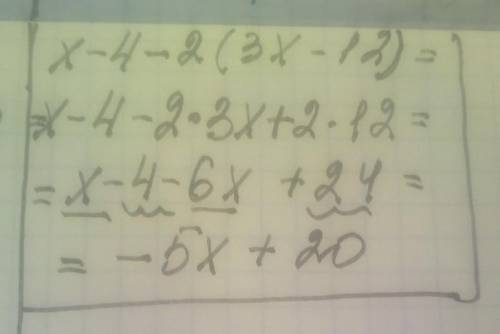 x-4-2(3x-12)=
=x-4-2·3x+2·12=
=x-4-6x+24=
=-5x+20